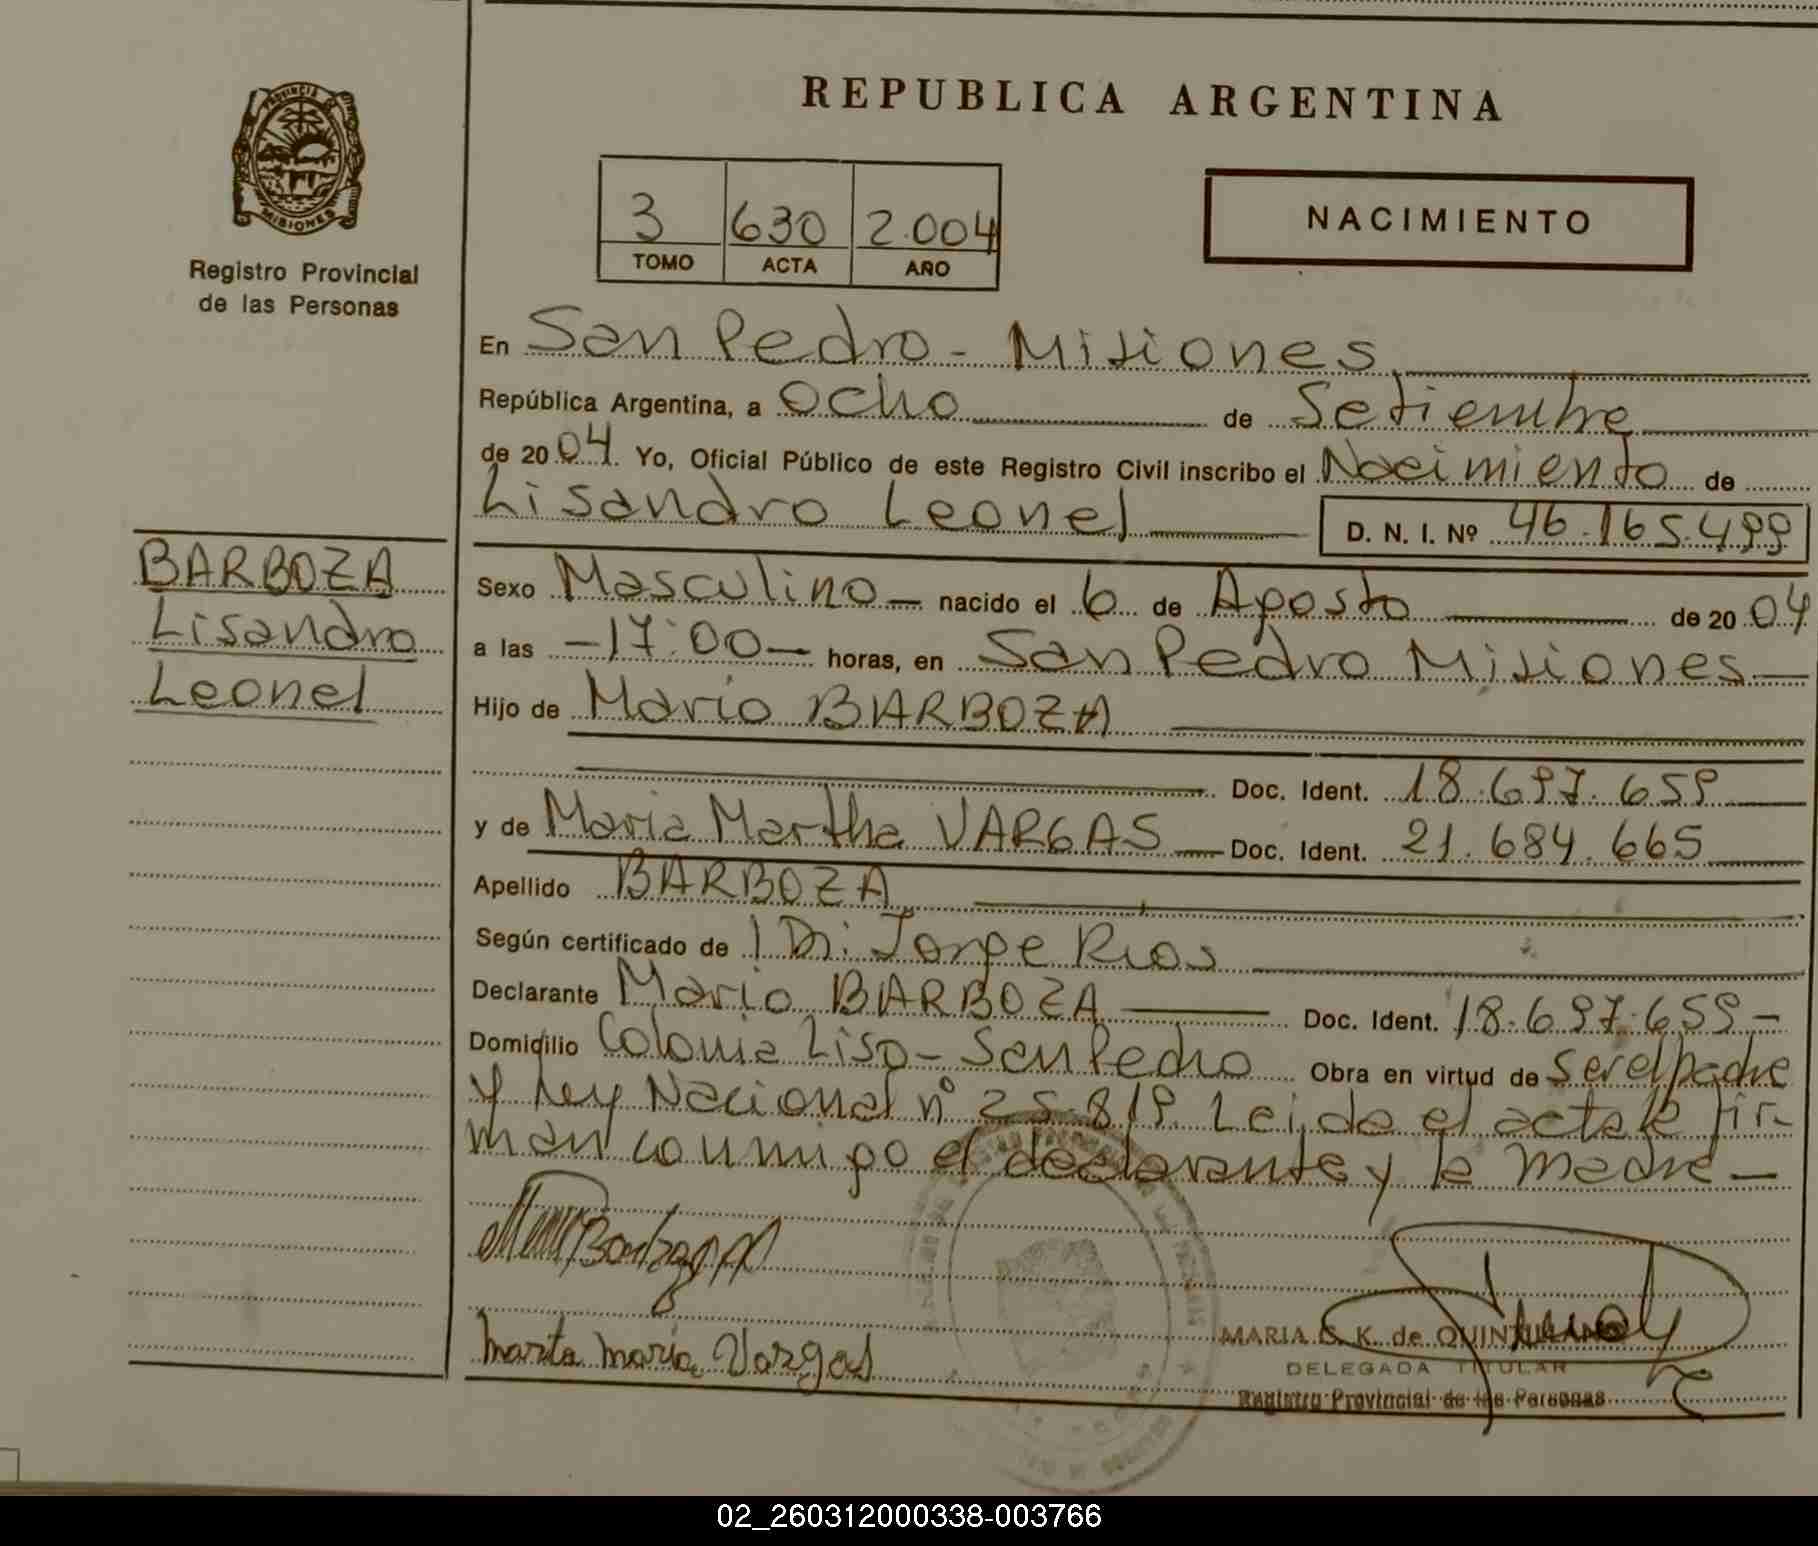 REPUBLICA ARGENTINA
PROVINCIA DE
MISIONES
Registro Provincial
de las Personas
3 630 2.004
TOMO ACTA AÑO
NACIMIENTO
En San Pedro - Misiones
República Argentina, a Ocho de Setiembre
de 20 04. Yo, Oficial Público de este Registro Civil inscribo el Nacimiento de
Lisandro Leonel D. N. I. Nº 46.165.499
BARBOZA
Lisandro
Leonel
Sexo Masculino — nacido el 6 de Agosto de 20 04
a las -17:00- horas, en San Pedro Misiones—
Hijo de Mario BARBOZA
Doc. Ident. 18.697.659
y de Maria Martha VARGAS — Doc. Ident. 21.684.665
Apellido BARBOZA
Según certificado de Dr. Jorge Rios
Declarante Mario BARBOZA — Doc. Ident. 18.697.659-
Domicilio Colonia Liso - San Pedro Obra en virtud de ser el padre
y Ley Nacional nº 25.819. Leida el acta la fir-
man conmigo el declarante y la madre—
Marta maria Vargas
MARIA S. K. de QUINTILIANO
DELEGADA TITULAR
Registro Provincial de las Personas
02_260312000338-003766